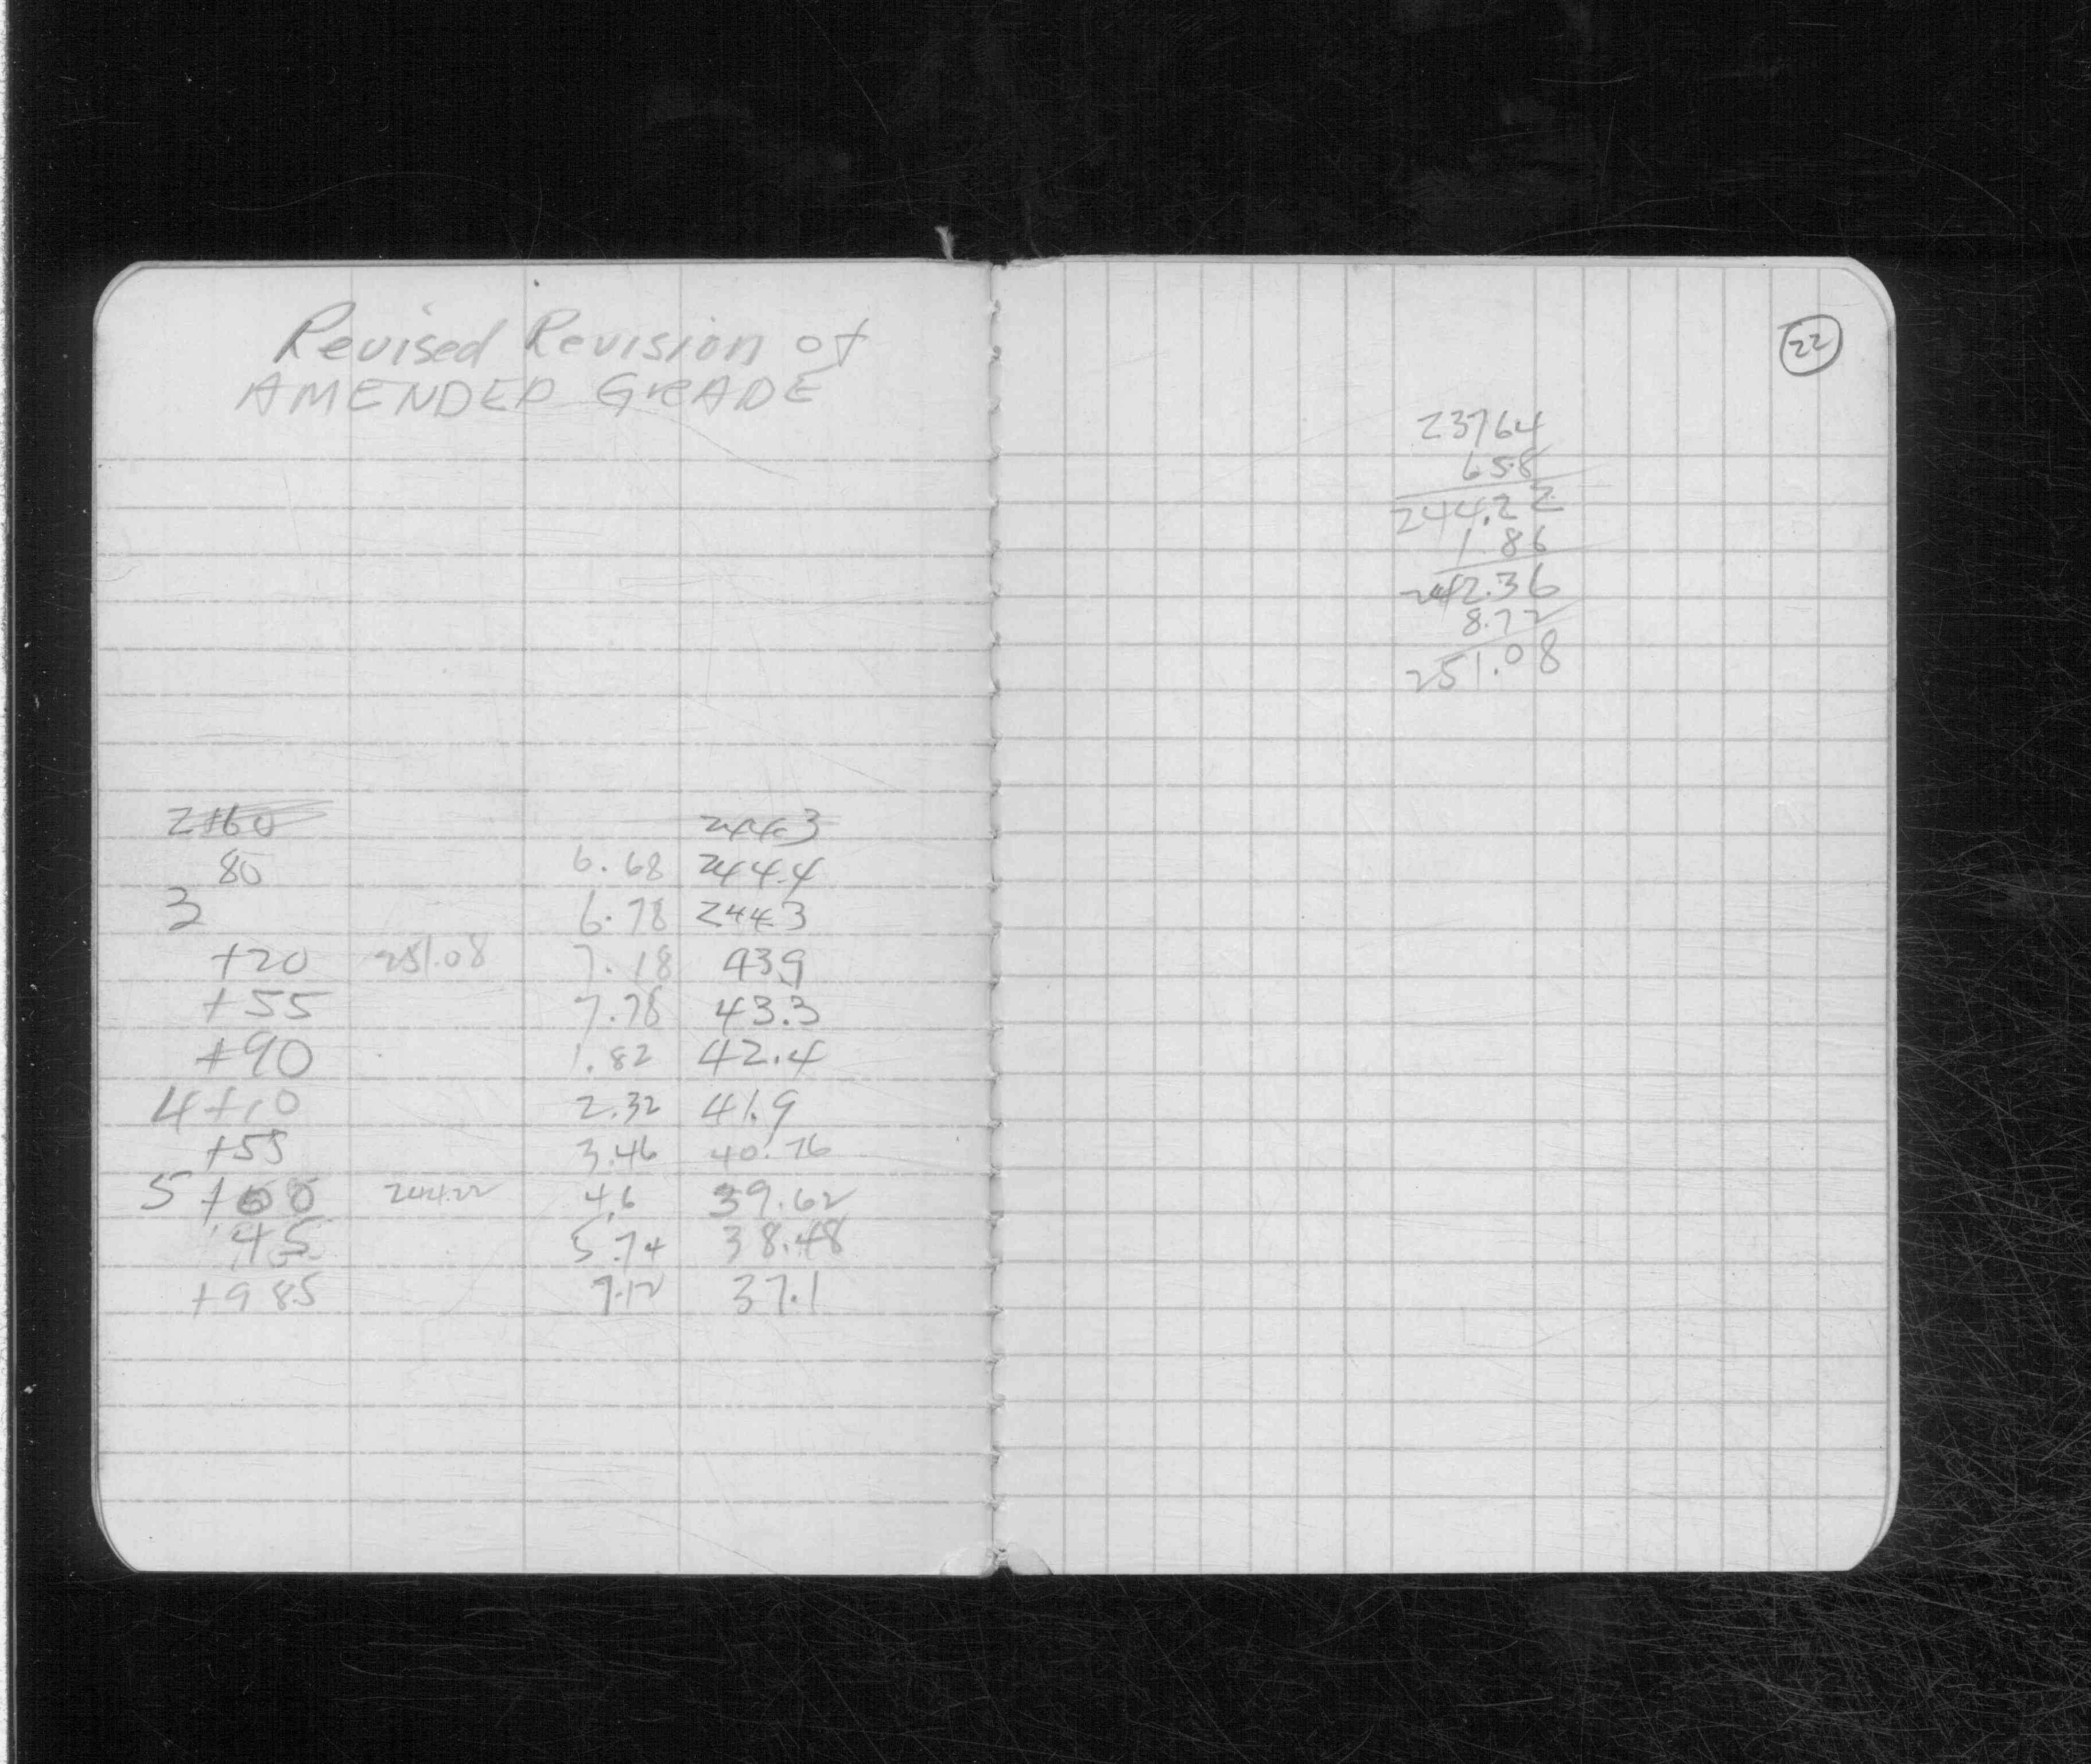 Revised Revision of
AMENDED GRADE
2+60 244.3
80 6.68 244.4
3 6.78 244.3
+20 251.08 7.18 43.9
+55 7.78 43.3
+90 1.82 42.4
4+10 2.32 41.9
+55 3.46 40.76
5+00 244.22 4.6 39.62
45 5.74 38.48
+985 7.12 37.1
22
23764
6.58
244.22
1.86
242.36
8.72
251.08